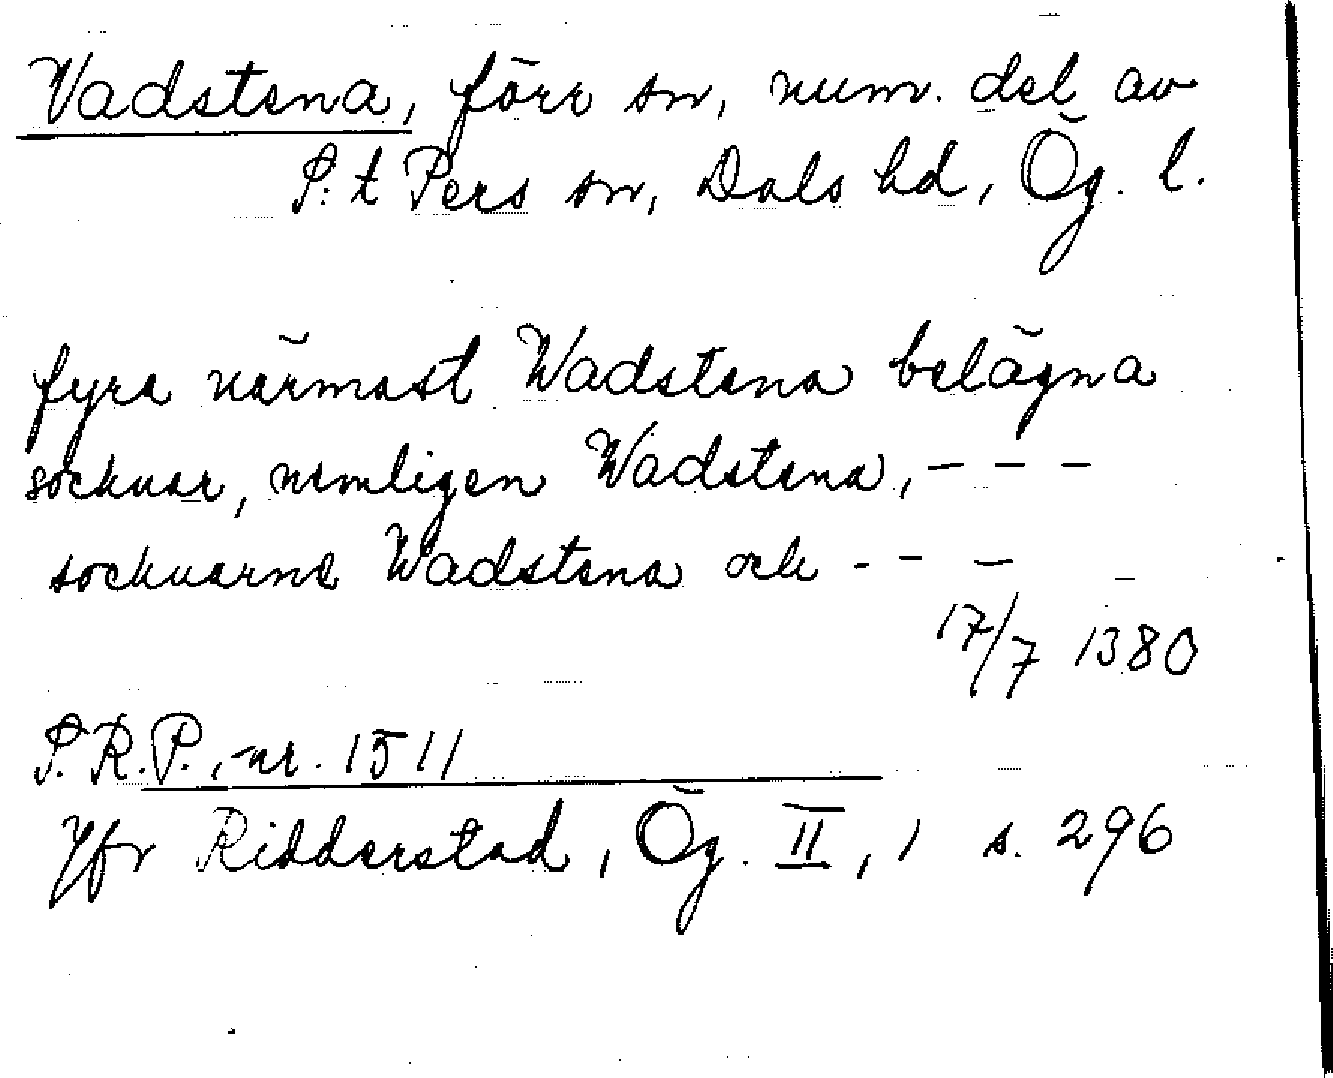 Vadstena, förr sn, num. del av
S:t Pers sn, Dals hd, Ög. l.
fyra närmast Wadstena belägna
socknar, nemligen Wadstena, - - -
socknarne Wadstena och - - -
17/7 1380
S.R.P., nr. 1511
Jfr Ridderstad, Ög. II, 1 s. 296